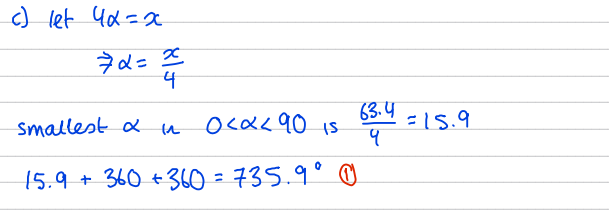 c) let 4α = x
⇒ α = x/4
smallest α in 0<α<90 is 63.4/4 = 15.9
15.9 + 360 + 360 = 735.9° ①